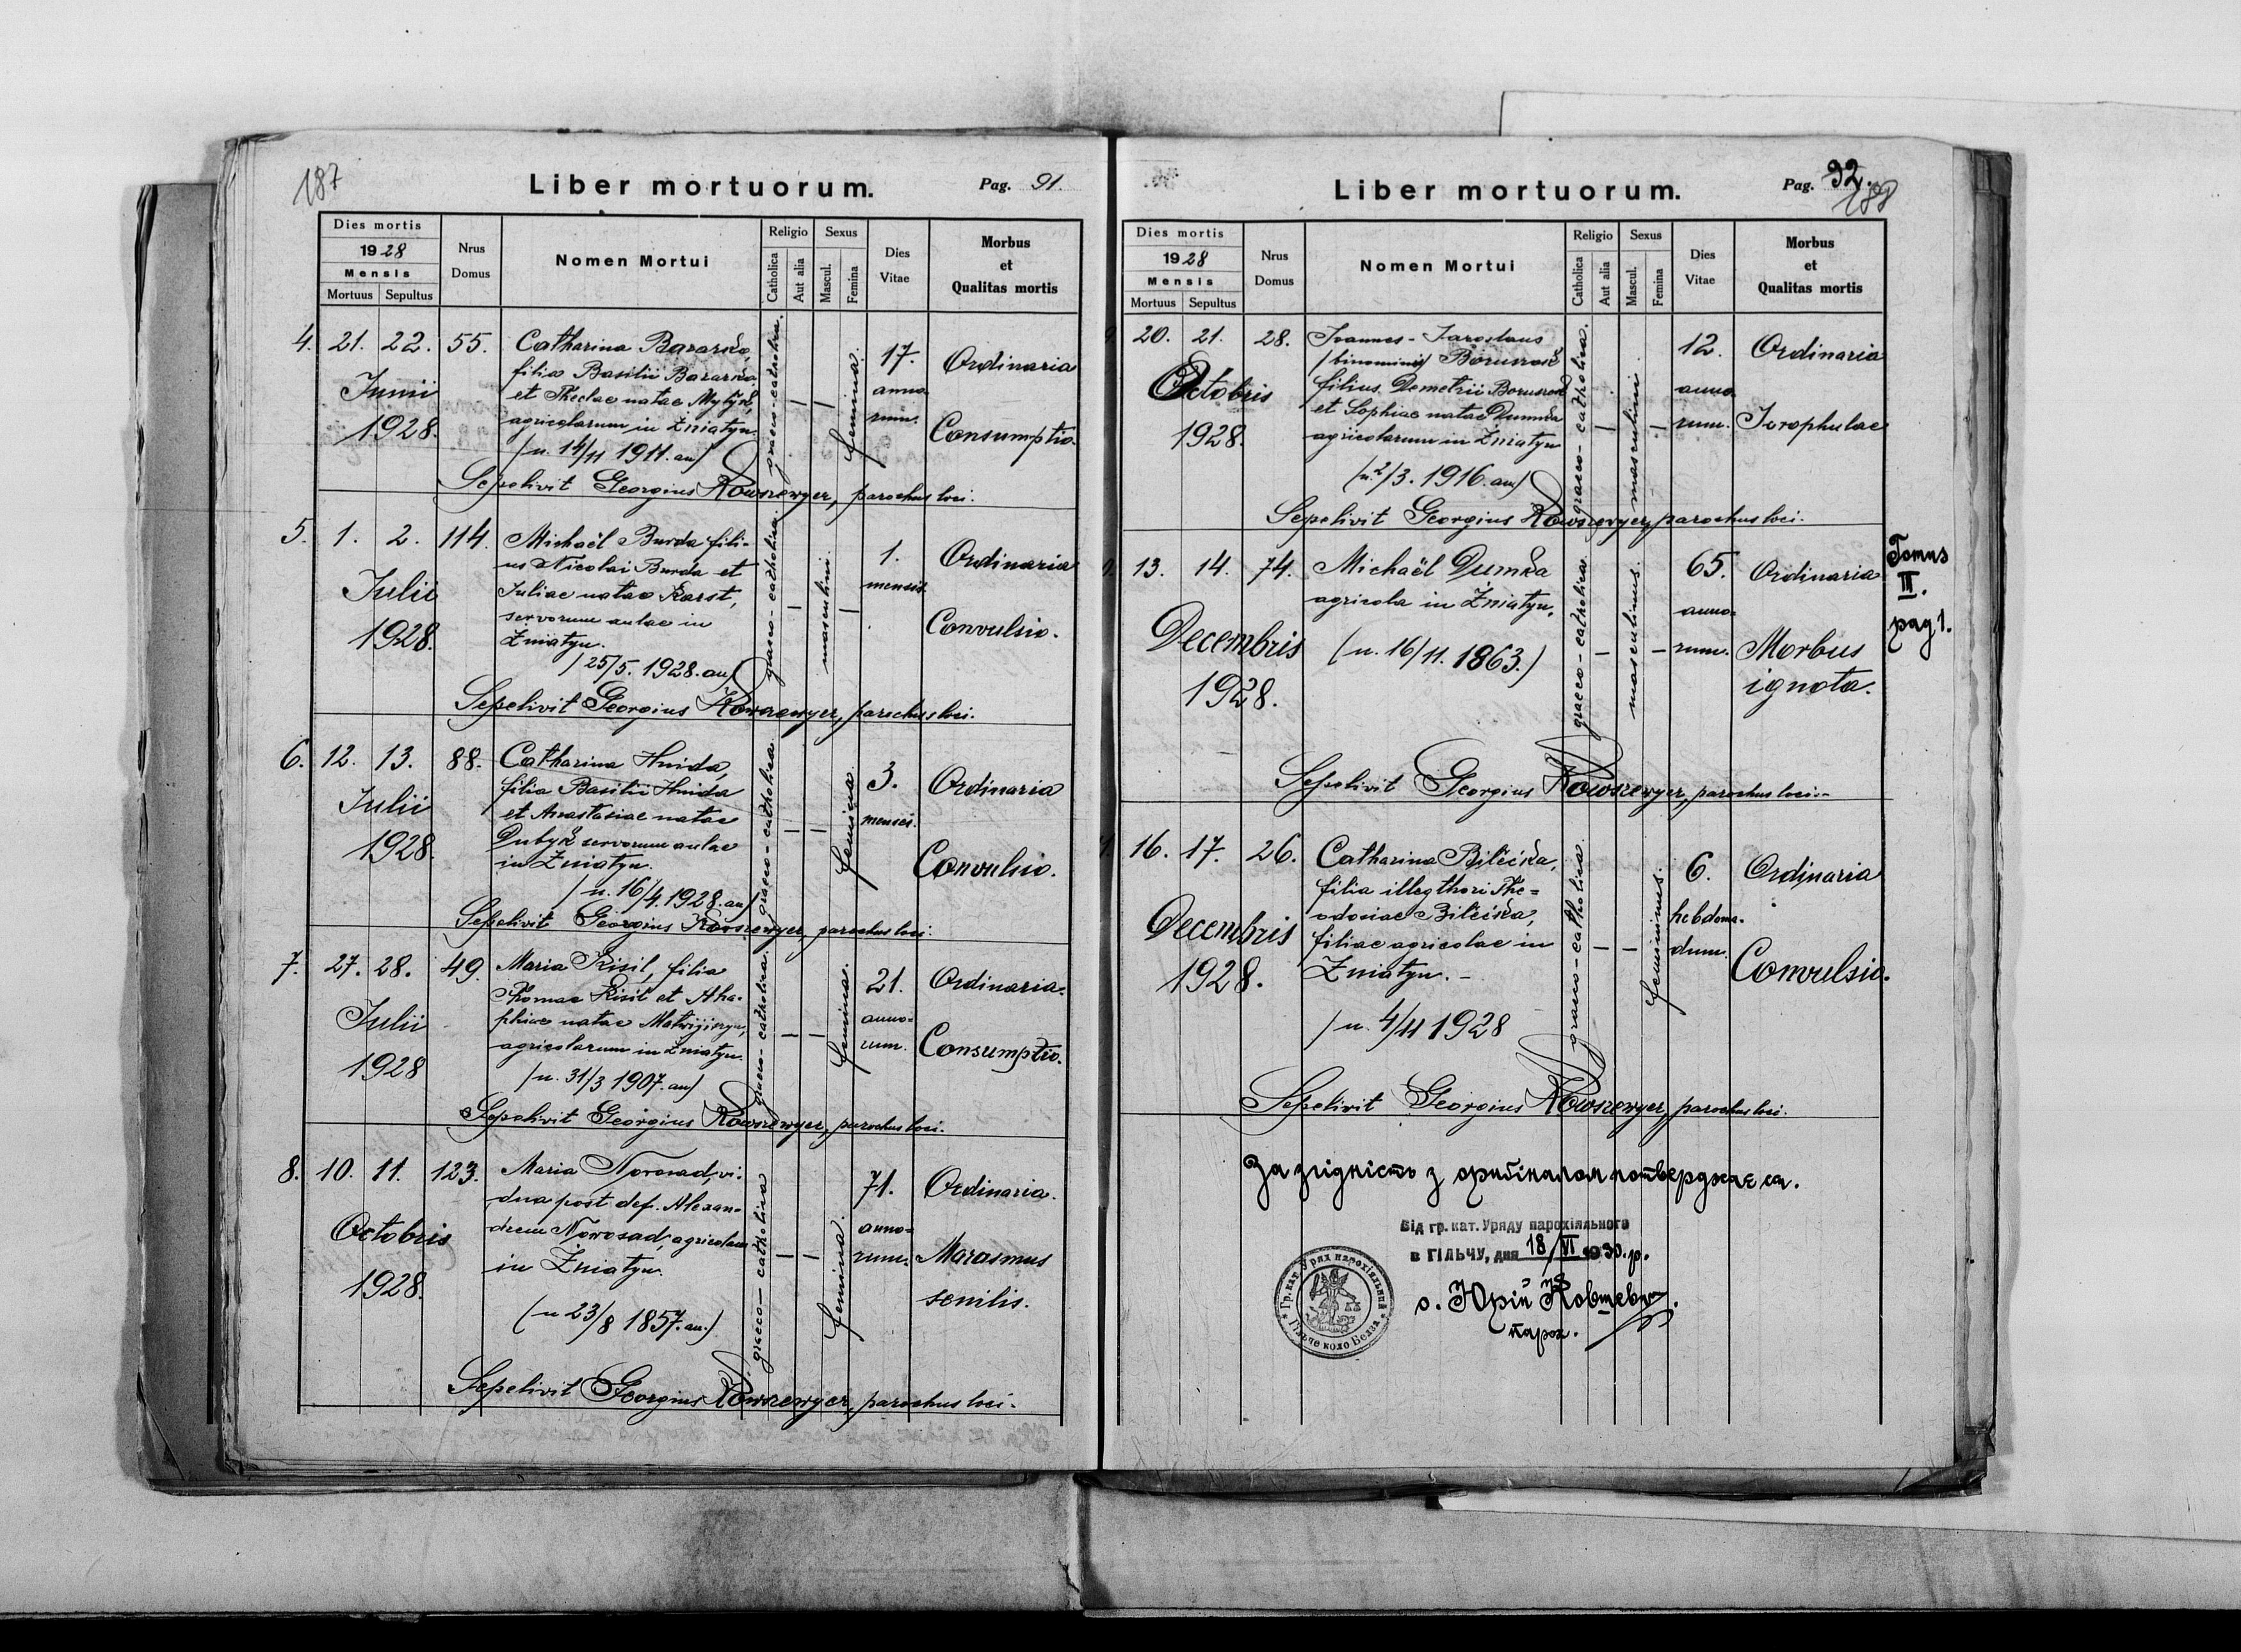 187
Liber mortuorum.
Pag. 91.
Dies mortis
1928
Mensis
Mortuus Sepultus
Nrus
Domus
Nomen Mortui
Religio
Catholica
Aut alia
Sexus
Mascul.
Femina
Dies
Vitae
Morbus
et
Qualitas mortis
4. 21. 22. 55.
Junii
1928.
Catharina
filia Basilii
et Theclae natae
agricolarum in Żniatyn.
/n. 14/11 1911. an/
graeco-catholica.
— —
femina.
17.
anno-
rum.
Ordinaria
Consumptio.
Sepelivit Georgius Kowszewyer, parochus loci.
5. 1. 2. 114.
Julii
1928.
Michaël Burda fili-
us Nicolai Burda et
Juliae natae Karst,
servorum aulae in
Żniatyn.
/25/5. 1928. an/
graeco-catholica.
—
masculini.
—
1.
mensis.
Ordinaria
Convulsio.
Sepelivit Georgius Kowszewyer, parochus loci.
6. 12. 13. 88.
Julii
1928.
Catharina Hnida,
filia Basilii Hnida
et Anastasiae natae
Dubyk servorum aulae
in Żniatyn.
/n. 16/4. 1928. an/
graeco-catholica.
— —
femina.
3.
menses.
Ordinaria
Convulsio.
Sepelivit Georgius Kowszewyer, parochus loci.
7. 27. 28. 49.
Julii
1928
Maria Kisil, filia
Thomae Kisil et Aha-
phiae natae
agricolarum in Żniatyn.
/n. 31/3 1907. an/
graeco-catholica.
— —
femina.
21.
anno-
rum.
Ordinaria.
Consumptio.
Sepelivit Georgius Kowszewyer, parochus loci.
8. 10. 11. 123.
Octobris
1928.
Maria Nowosad, vi-
dua post def. Alexan-
drem Nowosad, agricolam
in Żniatyn.
(n 23/8 1857. an.)
graeco-catholica
— —
femina.
71.
anno-
rum.
Ordinaria.
Marasmus
senilis.
Sepelivit Georgius Kowszewyer, parochus loci.
Liber mortuorum.
Pag. 92.
188
Dies mortis
1928
Mensis
Mortuus Sepultus
Nrus
Domus
Nomen Mortui
Religio
Catholica
Aut alia
Sexus
Mascul.
Femina
Dies
Vitae
Morbus
et
Qualitas mortis
20. 21. 28.
Octobris
1928.
Joannes-Jaroslaus
/binominis/
filius Demetrii
et Sophiae natae Dumka
agricolarum in Żniatyn
(n. 2/3. 1916. an)
graeco-catholica.
—
masculini
—
12.
anno-
rum.
Ordinaria
Scrophulae
Sepelivit Georgius Kowszewyer, parochus loci.
13. 14. 74.
Decembris
1928.
Michaël Dumka
agricola in Żniatyn.
(n. 16/11. 1863.)
graeco-catholica.
—
masculinus.
—
65.
anno-
rum.
Ordinaria
Morbus
ignota.
Tomus
II.
pag 1.
Sepelivit Georgius Kowszewyer, parochus loci.
16. 17. 26.
Decembris
1928.
Catharina Bilećka,
filia illegthori The=
odosiae Bilećka,
filiae agricolae in
Żniatyn.-
/n. 4/11 1928
graeco-catholica.
— —
femininus.
6.
hebdoma-
dum.
Ordinaria
Convulsio.
Sepelivit Georgius Kowszewyer, parochus loci.
За згідність з оригіналом потверджаєся.
Від гр. кат. Уряду парохіяльного
в ГІЛЬЧУ, дня 18/VI 1930. р.
о. Юрій
парох.
Гр. кат. Уряд парохіяльний
Гільче коло Белза